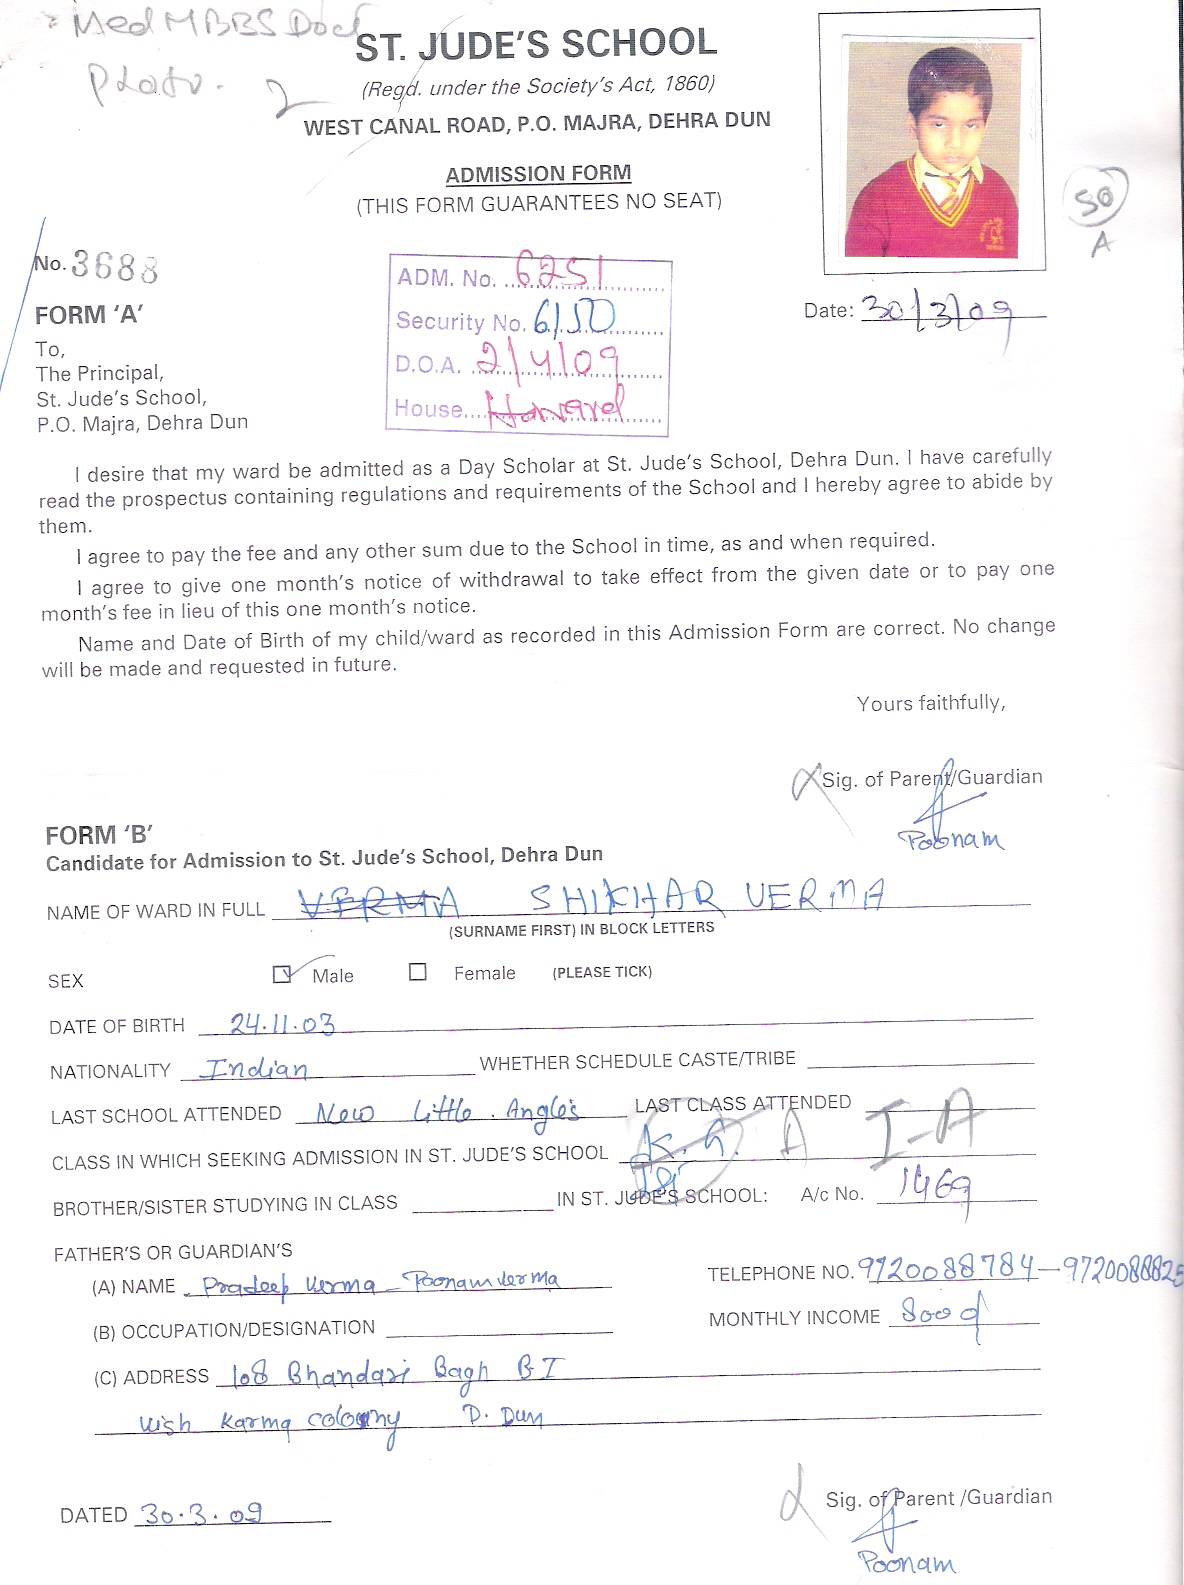 Med MBBS Doct
Photo. 2
ST. JUDE'S SCHOOL
(Regd. under the Society's Act, 1860)
WEST CANAL ROAD, P.O. MAJRA, DEHRA DUN
ADMISSION FORM
(THIS FORM GUARANTEES NO SEAT)
50
A
No. 3688
ADM. No. 6251
Security No. 6150
D.O.A. 2/4/09
House
Date: 30/3/09
FORM 'A'
To,
The Principal,
St. Jude's School,
P.O. Majra, Dehra Dun
I desire that my ward be admitted as a Day Scholar at St. Jude's School, Dehra Dun. I have carefully
read the prospectus containing regulations and requirements of the School and I hereby agree to abide by
them.
I agree to pay the fee and any other sum due to the School in time, as and when required.
I agree to give one month's notice of withdrawal to take effect from the given date or to pay one
month's fee in lieu of this one month's notice.
Name and Date of Birth of my child/ward as recorded in this Admission Form are correct. No change
will be made and requested in future.
Yours faithfully,
Sig. of Parent/Guardian
Poonam
FORM 'B'
Candidate for Admission to St. Jude's School, Dehra Dun
NAME OF WARD IN FULL VERMA SHIKHAR VERMA
(SURNAME FIRST) IN BLOCK LETTERS
SEX Male Female (PLEASE TICK)
DATE OF BIRTH 24.11.03
NATIONALITY Indian WHETHER SCHEDULE CASTE/TRIBE
LAST SCHOOL ATTENDED New Little. Angles LAST CLASS ATTENDED
CLASS IN WHICH SEEKING ADMISSION IN ST. JUDE'S SCHOOL K.G. A I-A
Ist
BROTHER/SISTER STUDYING IN CLASS IN ST. JUDE'S SCHOOL: A/c No. 1469
FATHER'S OR GUARDIAN'S
(A) NAME Pradeep Verma - Poonam Verma TELEPHONE NO. 9720088784-9720088825
(B) OCCUPATION/DESIGNATION MONTHLY INCOME
(C) ADDRESS 108 Bhandari Bagh B I
Wish Karma colony D. Dun
DATED 30.3.09
Sig. of Parent /Guardian
Poonam